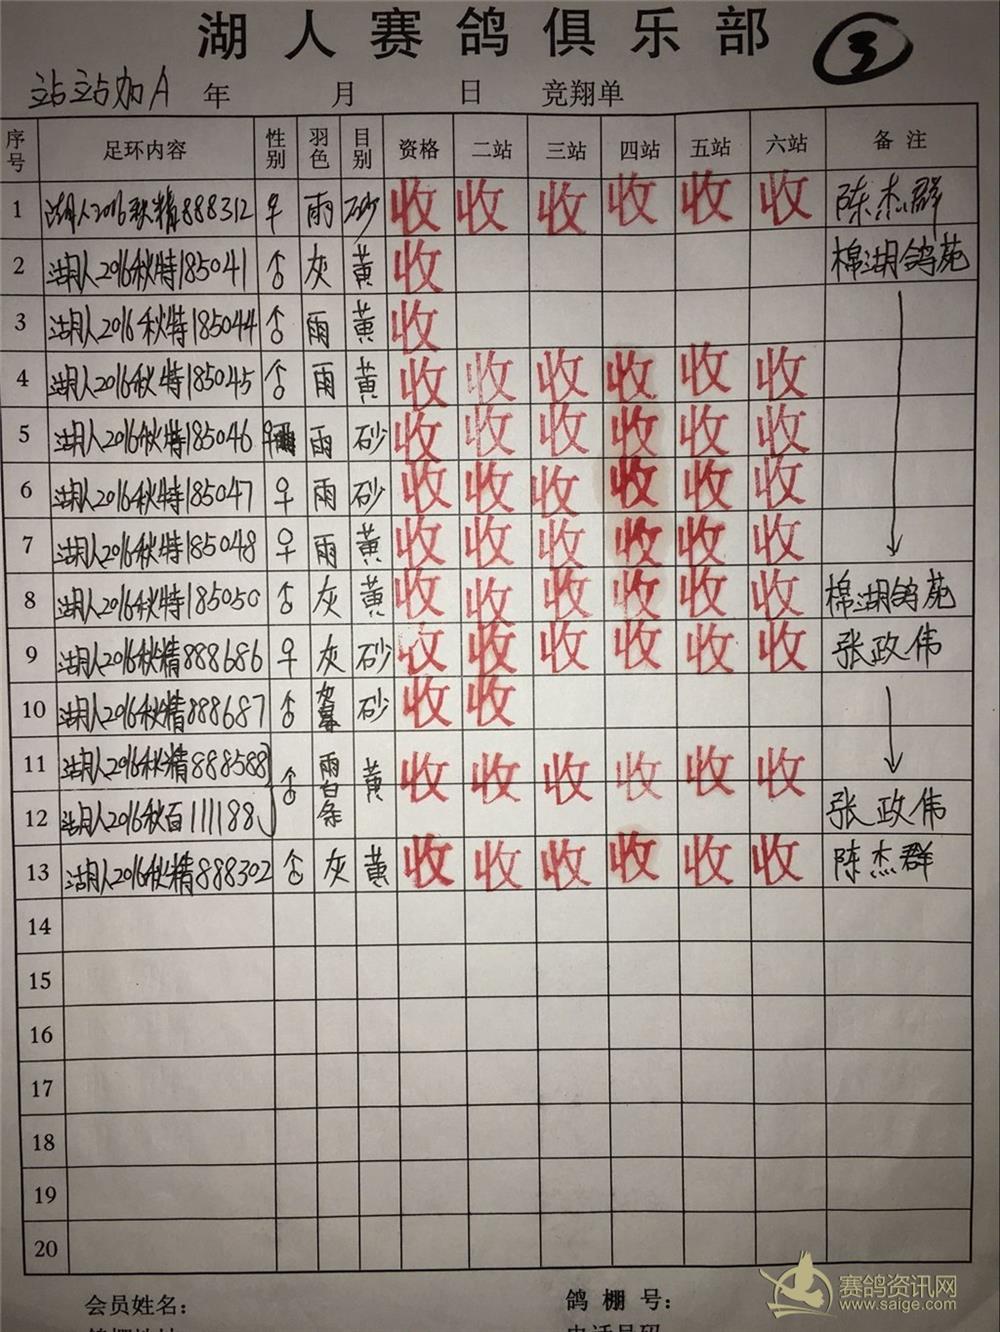 湖人赛鸽俱乐部 ③
站站加A 年 月 日 竞翔单
序号 足环内容 性别 羽色 目别 资格 二站 三站 四站 五站 六站 备注
1 湖人2016秋精888312 ♀ 雨 砂 收 收 收 收 收 收 陈杰群
2 湖人2016秋特185041 ♂ 灰 黄 收 棉湖鸽苑
3 湖人2016秋特185044 ♂ 雨 黄 收
4 湖人2016秋特185045 ♂ 雨 黄 收 收 收 收 收 收
5 湖人2016秋特185046 ♀ 雨 砂 收 收 收 收 收 收
6 湖人2016秋特185047 ♀ 雨 砂 收 收 收 收 收 收
7 湖人2016秋特185048 ♀ 雨 黄 收 收 收 收 收 收
8 湖人2016秋特185050 ♂ 灰 黄 收 收 收 收 收 收 棉湖鸽苑
9 湖人2016秋精888686 ♀ 灰 砂 收 收 收 收 收 收 张政伟
10 湖人2016秋精888687 ♂ 砂 收 收
11 湖人2016秋精888588 ♂ 雨白条 黄 收 收 收 收 收 收
12 湖人2016秋百111188 张政伟
13 湖人2016秋精888302 ♂ 灰 黄 收 收 收 收 收 收 陈杰群
14
15
16
17
18
19
20
会员姓名： 鸽棚号：
赛鸽资讯网
www.saige.com